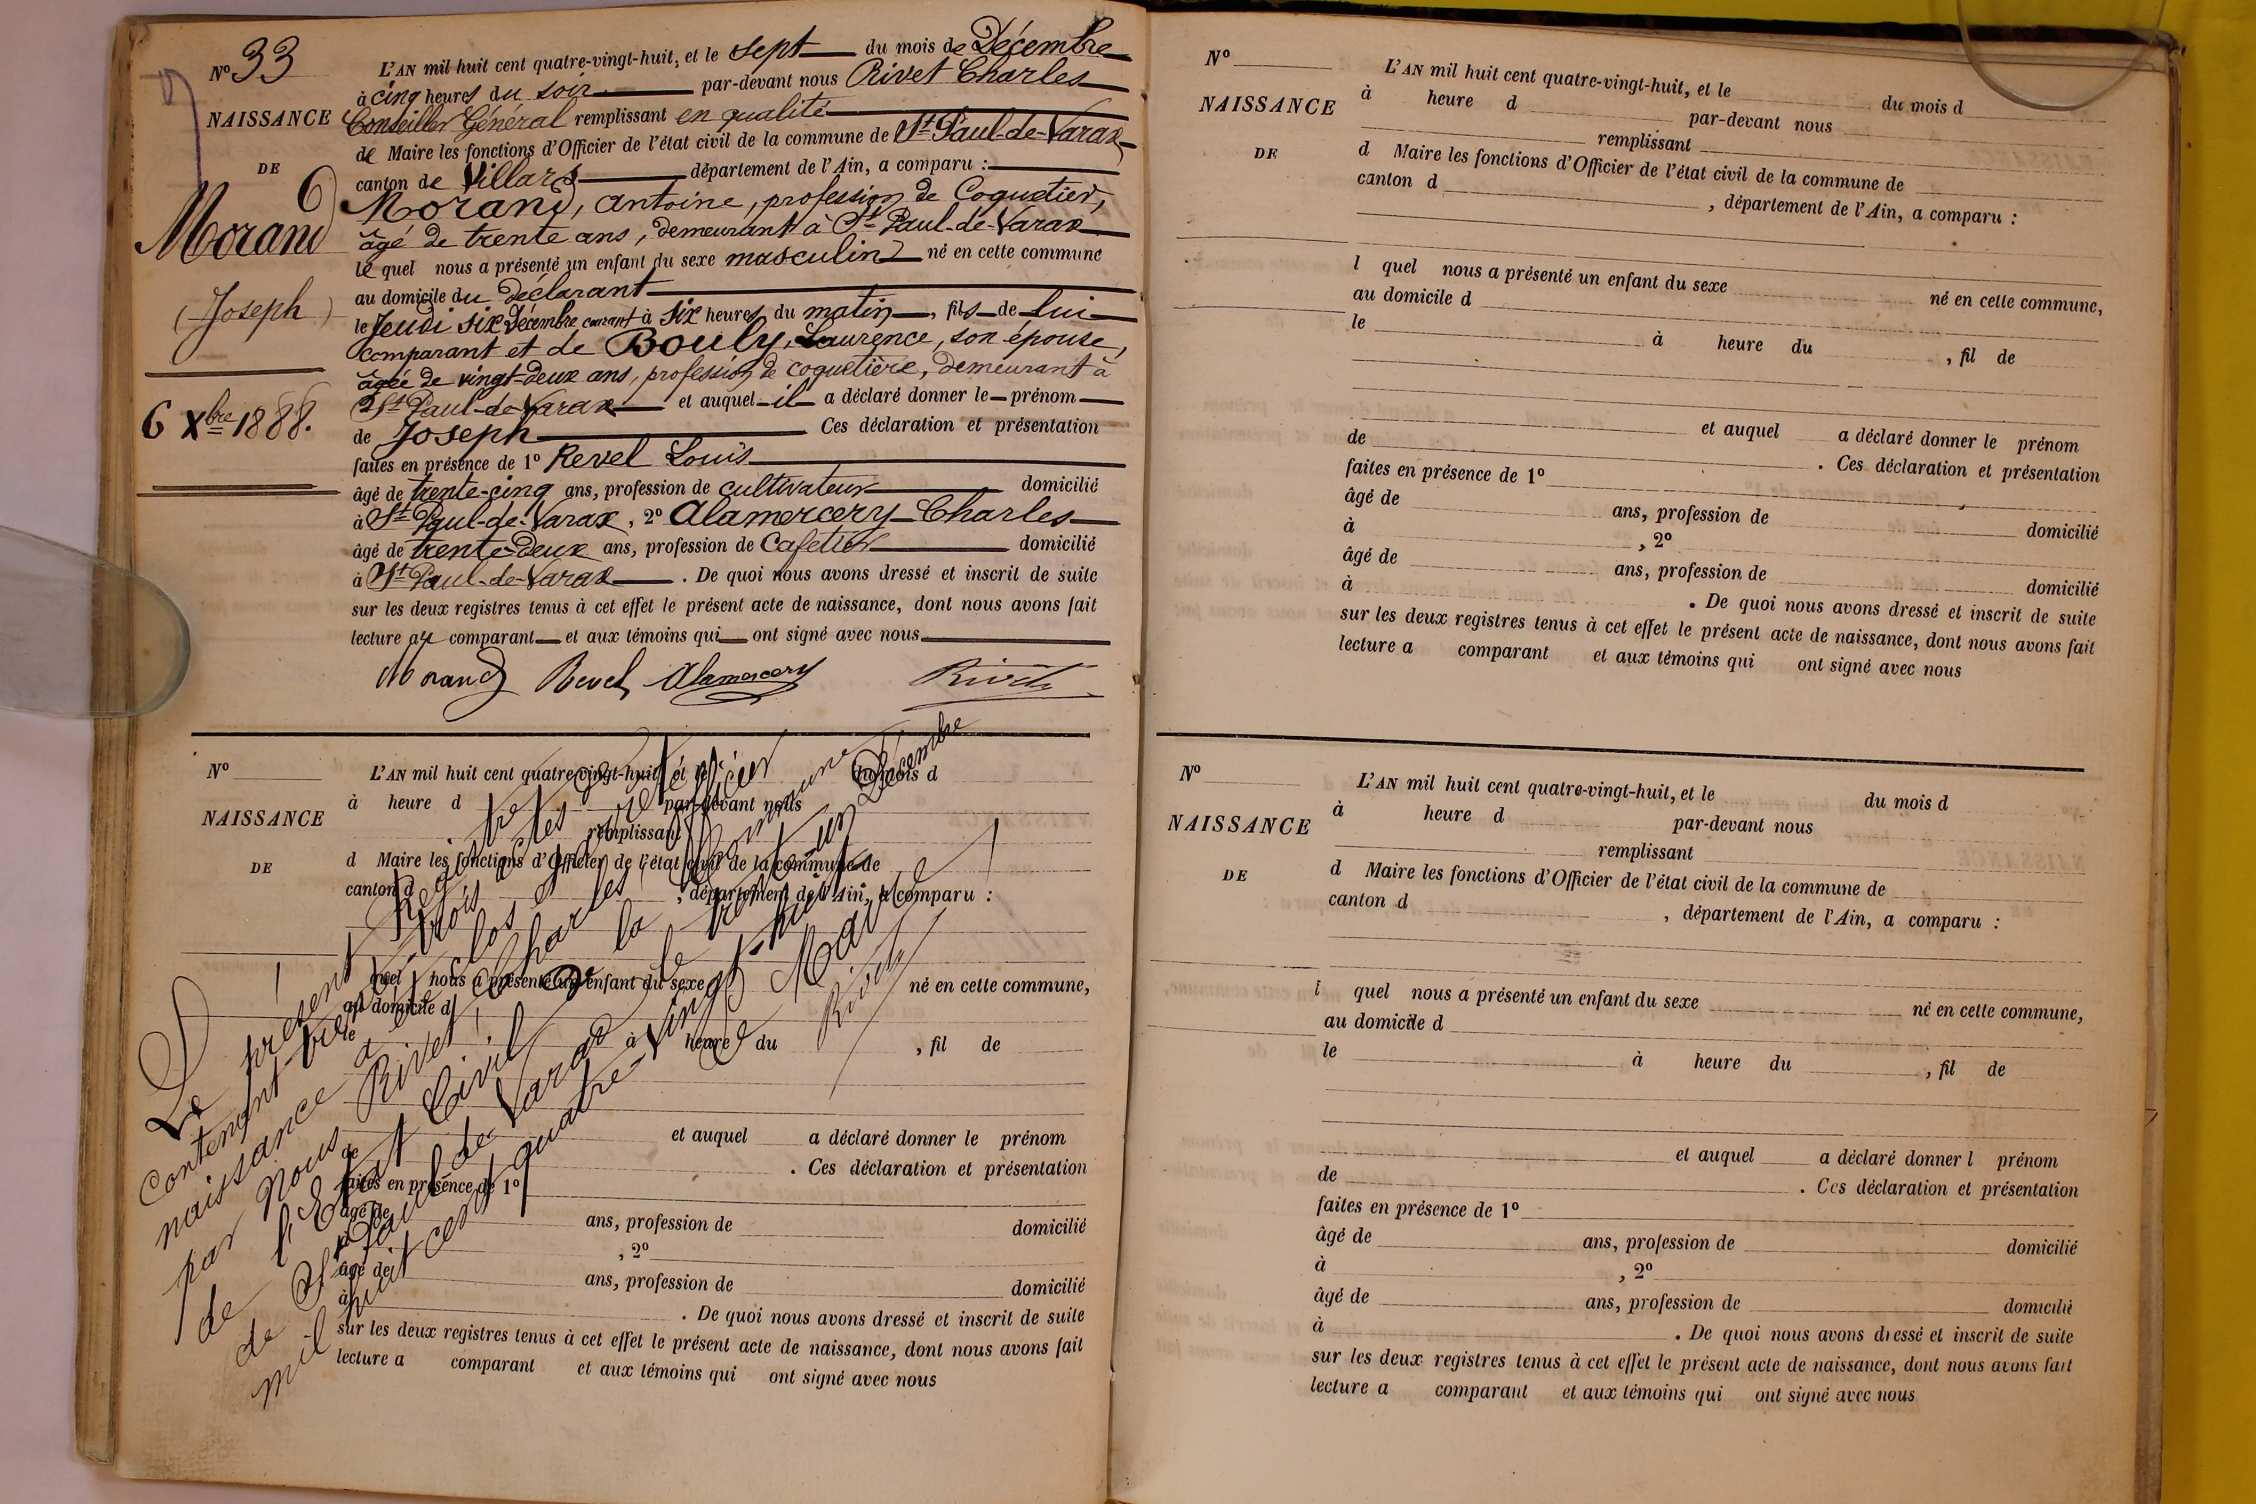 N° 33
NAISSANCE
DE
Morand
(Joseph)
6 Xbre 1888.
L'AN mil huit cent quatre-vingt-huit, et le sept du mois de Décembre
à cinq heures du soir par-devant nous Rivet Charles
Conseiller Général remplissant en qualité
de Maire les fonctions d'Officier de l'état civil de la commune de St Paul-de-Varax
canton de Villars département de l'Ain, a comparu :
Morand, Antoine, profession de Coquetier,
âgé de trente ans, demeurant à St Paul-de-Varax
le quel nous a présenté un enfant du sexe masculin né en cette commune
au domicile du Déclarant
le Jeudi six Décembre courant à six heures du matin, fils de lui
comparant et de Bouly, Laurence, son épouse,
âgée de vingt-deux ans, profession de coquetière, demeurant à
St Paul-de-Varax et auquel il a déclaré donner le prénom
de Joseph Ces déclaration et présentation
faites en présence de 1° Revel Louis
âgé de trente-cinq ans, profession de cultivateur domicilié
à St Paul-de-Varax, 2° Alamercery Charles
âgé de trente-deux ans, profession de Cafetier domicilié
à St Paul-de-Varax . De quoi nous avons dressé et inscrit de suite
sur les deux registres tenus à cet effet le présent acte de naissance, dont nous avons fait
lecture au comparant et aux témoins qui ont signé avec nous
Morand Revel Alamercery Rivet
N°
NAISSANCE
DE
L'AN mil huit cent quatre-vingt-huit, et le du mois d
à heure d par-devant nous
remplissant
d Maire les fonctions d'Officier de l'état civil de la commune de
canton d , département de l'Ain, a comparu :
quel nous a présenté un enfant du sexe né en cette commune,
au domicile d
le à heure du , fil de
et auquel a déclaré donner le prénom
de . Ces déclaration et présentation
faites en présence de 1°
âgé de ans, profession de domicilié
à , 2°
âgé de ans, profession de domicilié
à . De quoi nous avons dressé et inscrit de suite
sur les deux registres tenus à cet effet le présent acte de naissance, dont nous avons fait
lecture a comparant et aux témoins qui ont signé avec nous
Le présent Registre
contenant trente-trois actes de
naissance a été clos et arrêté
par Nous Rivet Charles Officier
de l'Etat Civil de la Commune
de St Paul-de-Varax le trente-un Décembre
mil huit cent quatre-vingt-huit
Le Maire
Rivet
N°
NAISSANCE
DE
L'AN mil huit cent quatre-vingt-huit, et le du mois d
à heure d par-devant nous
remplissant
d Maire les fonctions d'Officier de l'état civil de la commune de
canton d , département de l'Ain, a comparu :
l quel nous a présenté un enfant du sexe né en cette commune,
au domicile d
le à heure du , fil de
et auquel a déclaré donner le prénom
de . Ces déclaration et présentation
faites en présence de 1°
âgé de ans, profession de domicilié
à , 2°
âgé de ans, profession de domicilié
à . De quoi nous avons dressé et inscrit de suite
sur les deux registres tenus à cet effet le présent acte de naissance, dont nous avons fait
lecture a comparant et aux témoins qui ont signé avec nous
N°
NAISSANCE
DE
L'AN mil huit cent quatre-vingt-huit, et le du mois d
à heure d par-devant nous
remplissant
d Maire les fonctions d'Officier de l'état civil de la commune de
canton d , département de l'Ain, a comparu :
l quel nous a présenté un enfant du sexe né en cette commune,
au domicile d
le à heure du , fil de
et auquel a déclaré donner l prénom
de . Ces déclaration et présentation
faites en présence de 1°
âgé de ans, profession de domicilié
à , 2°
âgé de ans, profession de domicilié
à . De quoi nous avons dressé et inscrit de suite
sur les deux registres tenus à cet effet le présent acte de naissance, dont nous avons fait
lecture a comparant et aux témoins qui ont signé avec nous